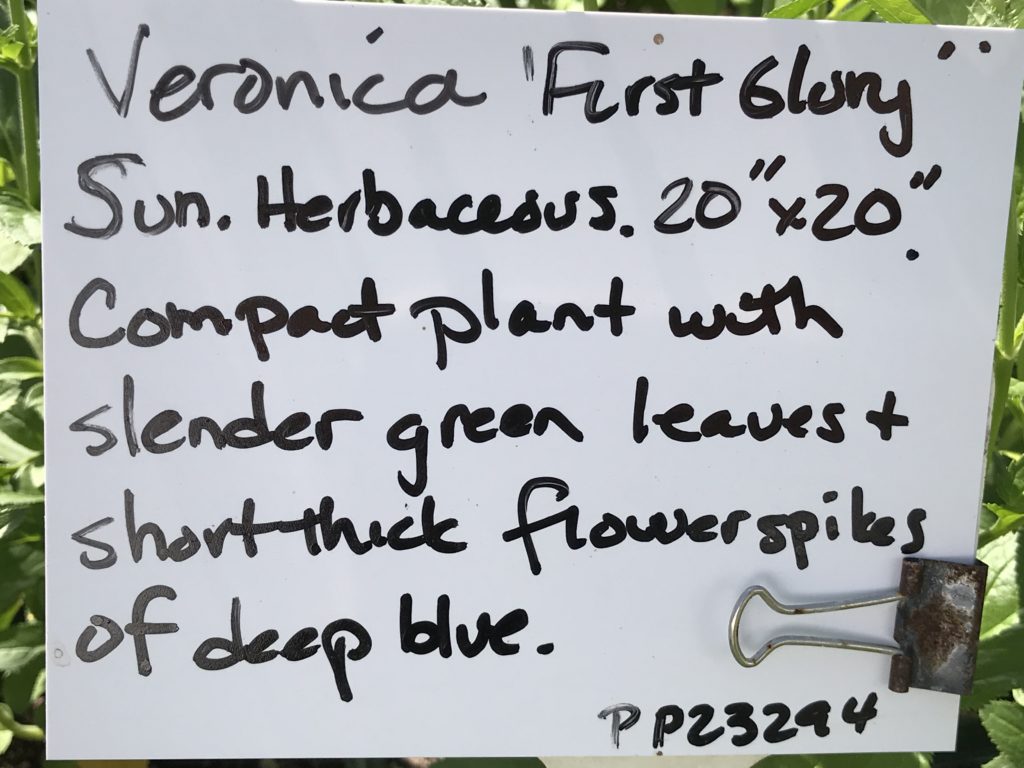 Veronica "First Glory"
Sun. Herbaceous. 20"x20".
Compact plant with
slender green leaves +
short thick flower spikes
of deep blue.
PP23294